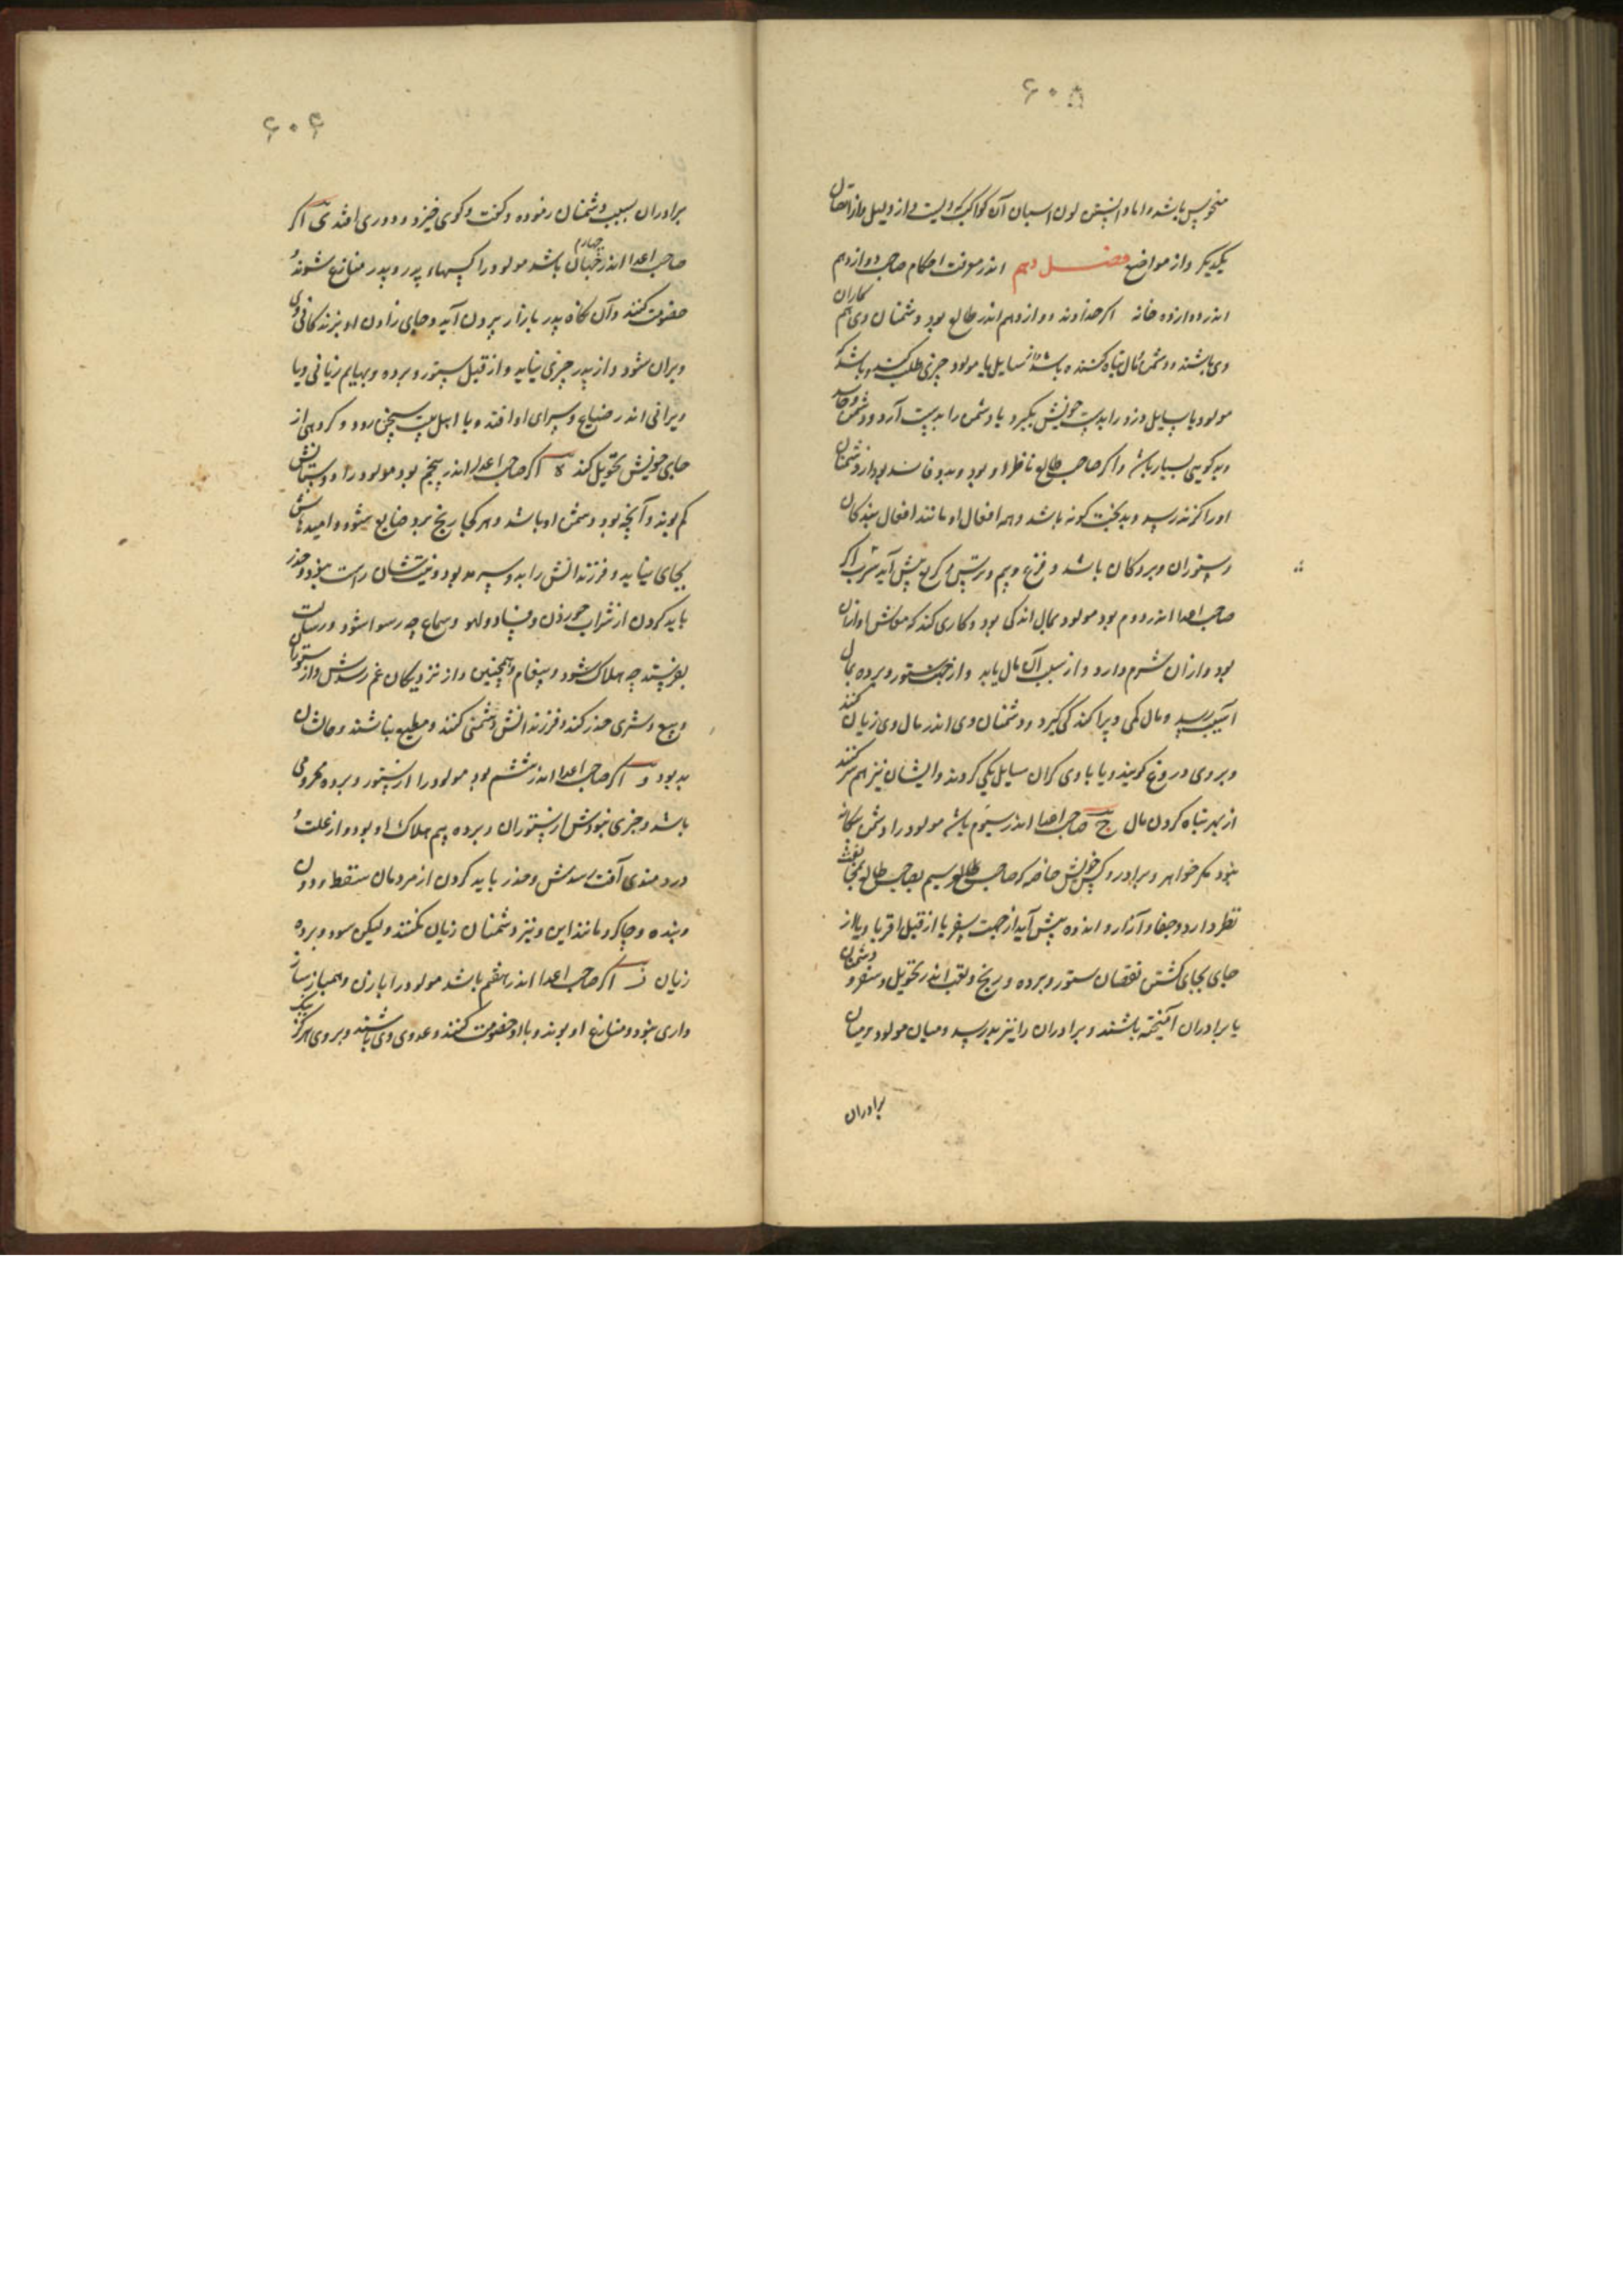 ۶۰۵
منحوس باشد و اما دانستن لون اسبان آن کواکب که ولیست و از دلیل و از اتصال
یکدیگر و از مواضع فصل دهم اندر معرفت احکام صاحب دوازدهم
اندر دوازده خانه اگر خداوند دوازدهم اندر طالع بود دشمنان وی هم کاران
وی باشند و دشمن مال تباه کننده باشد از سایل یا مولود چیزی طلب کنند و باشد که
مولود یا سایل دزد را بدست خویش بگیرد یا دشمن را بدست آرد و دشمن و حاسد
و بدگوی بسیار باشد و اگر صاحب طالع ناظر او بود و بدو فاسد بود از دشمنان
او را گزند رسد و بدبخت گونه باشد و همه افعال او مانند افعال بندگان
و ستوران و بردگان باشد و فزع و بیم و ترس و کریه پیش آید ب اگر
صاحب اعدا اندر دوم بود مولود بمال اندکی بود و کاری کند که معاش او از آن
بود و از آن شرم دارد و از سبب آن مال یابد و از جهت ستور و برده بمال
آسیب رسد و مال کمی و پراکندگی گیرد و دشمنان وی اندر مال وی زیان کنند
و بر وی دروغ گویند و یا با وی گران سایل یکی گردند و ایشان نیز هم سر کنند
از بهر تباه کردن مال ج صاحب اعدا اندر سیوم باشد مولود را دشمن بیگانه
نبود مگر خواهر و برادر و کس خویش خاصه که صاحب طالع سیم بصاحب طالع بمخالفت
نظر دارد و جفا و آزار و اندوه پیش آید از جهت سفر یا از قبل اقربا و یا از
جای بجای گشتن نقصان ستور و برده و رنج و تعب اندر تحویل و سفر و دشمنان
با برادران آمیخته باشند و برادران را نیز بد رسد و میان مولود و میان
برادران
۶۰۶
برادران بسبب دشمنان رنوده و گفت و گوی خیزد و دوری افتد د اگر
صاحب اعدا اندر چهارم باشد مولود را کسهاء پدر و پدر منازع شوند و
خصومت کنند و آن گاه پدر بازار بیرون آید و جای زادن او بزندگانی وی
ویران شود و از پدر چیزی نیابد و از قبل ستور و برده و بهایم زیانی و یا
ویرانی اندر ضیاع و سرای او افتد و با اهل بیت بسختی رود و گروهی از
جای خویش تحویل کند ه اگر صاحب اعدا اندر پنجم بود مولود را دوستانش
کم بوند و آنچه بود دشمن او باشد و هر کجا رنج برد ضایع شود و امیدهاش
بجای نیاید و فرزندانش را بد و سیه مد بود و نیت‌شان راست نبود و حذر
باید کردن از شراب خوردن و فساد و لهو و سماع چه رسوا شود و رسالت
بفرستد چه هلاک شود و پیغام و همچنین و از نزدیکان غم رسدش و از ستوران
و بیع و شری حذر کند و فرزندانش دشمنی کنند و مطیع نباشند و حالشان
بد بود و اگر صاحب اعدا اندر ششم بود مولود را از ستور و برده محرومی
باشد و خیری نبودش از ستوران و برده بیم هلاک او بود و از علت و
دردمندی آفت رسدش و حذر باید کردن از مردمان سقط و دون
و بنده و چاکر و مانند این و نیز دشمنان زیان نکنند و لیکن سود و برده
زیان ز اگر صاحب اعدا اندر هفتم باشد مولود را با زن و همباز ساز
واری نبود و منازع او بوند و با او خصومت کنند و عدوی وی باشند و بر وی هرگز نیک